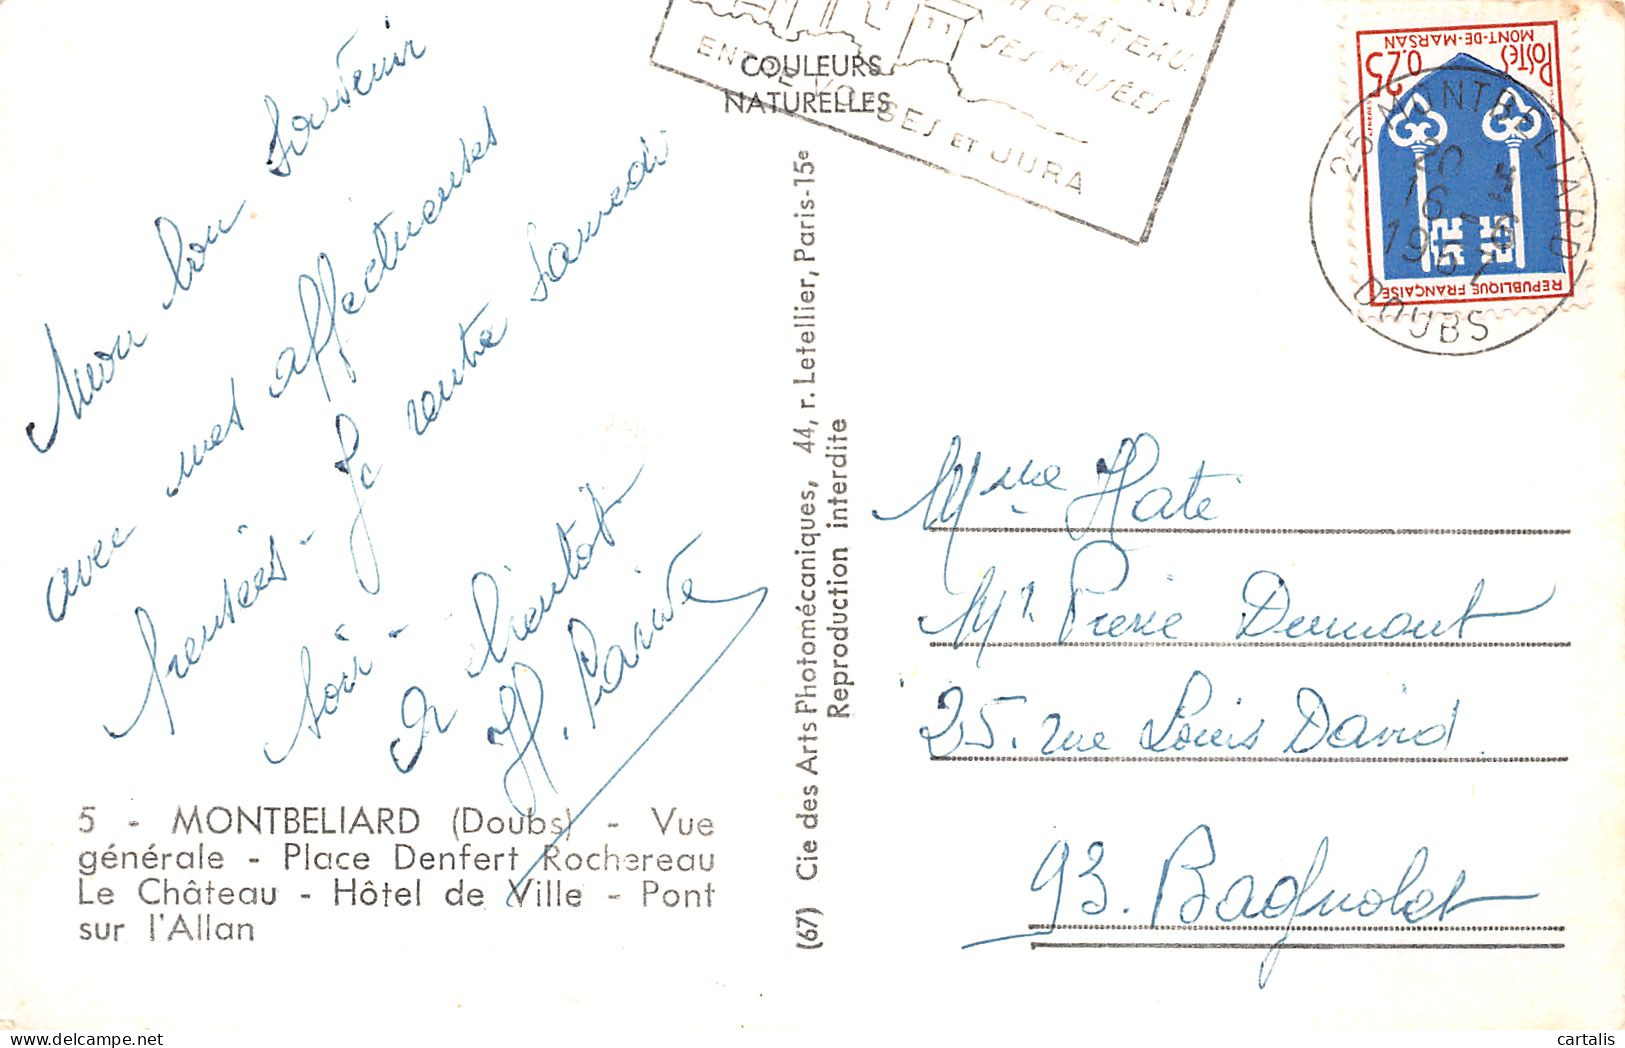 Mon bon Souvenir
avec mes affectueuses
pensées - Je rentre Samedi
soir - A bientôt
5 - MONTBELIARD (Doubs) - Vue
générale - Place Denfert Rochereau
Le Château - Hôtel de Ville - Pont
sur l'Allan
COULEURS
NATURELLES
(67) Cie des Arts Photomécaniques, 44, r. Letellier, Paris-15e
Reproduction interdite
SON CHÂTEAU
SES MUSÉES
ENTRE VOSGES ET JURA
25 MONTBELIARD
DOUBS
20
16
1967
POSTES
0.25
MONT-DE-MARSAN
REPUBLIQUE FRANÇAISE
Mme Haté
Mr Pierre Dumont
25. rue Louis David
93. Bagnolet
cartalis